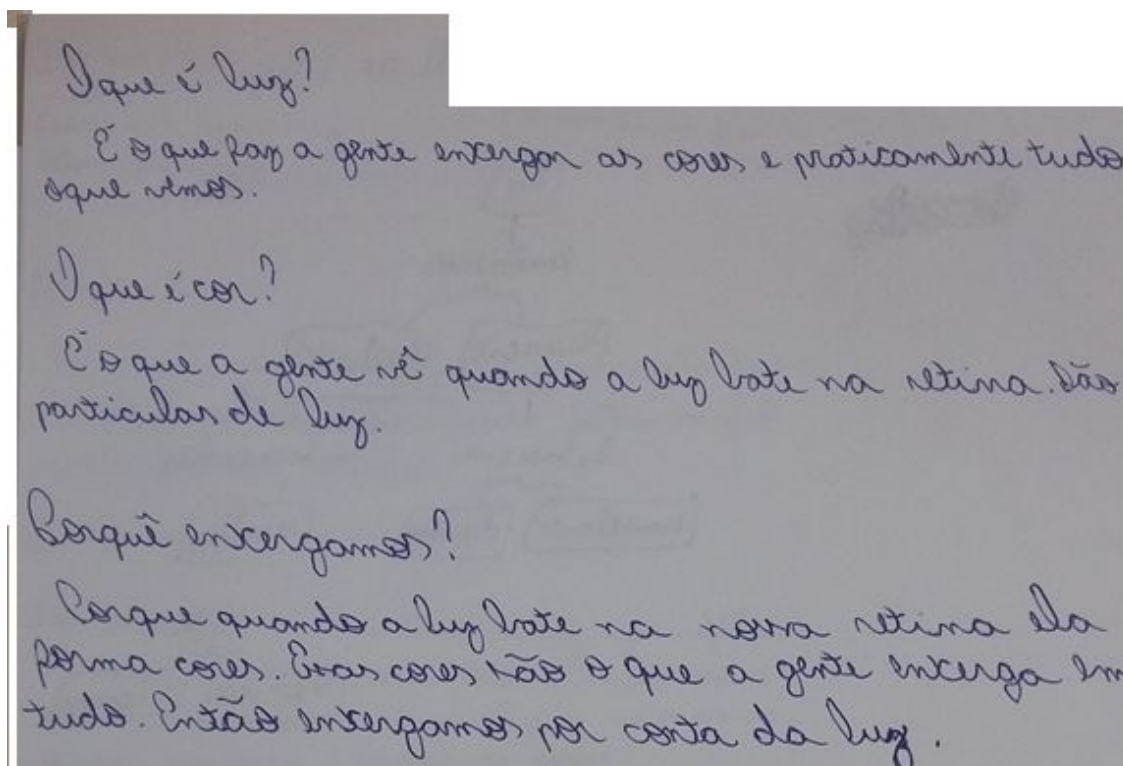 O que é luz?
É o que faz a gente enxergar as cores e praticamente tudo
oque vemos.
O que é cor?
É o que a gente vê quando a luz bate na retina. São
particulas de luz.
Porquê enxergamos?
Porque quando a luz bate na nossa retina ela
forma cores. Essas cores são o que a gente enxerga em
tudo. Então enxergamos por conta da luz.